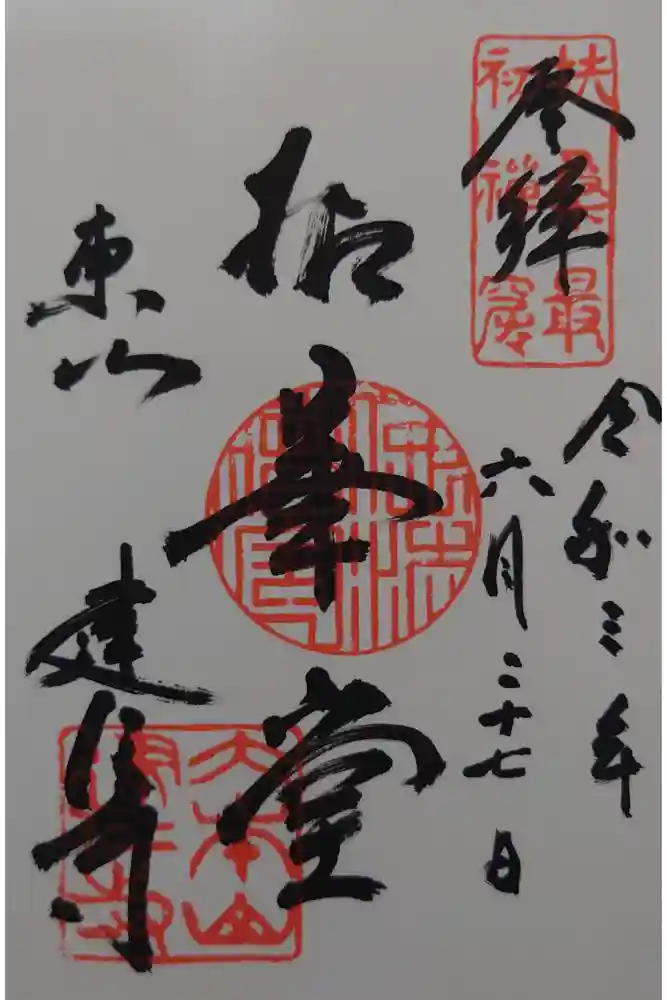 奉拝
扶桑最
初禅窟
令和三年
六月二十七日
拈華堂
東山
建仁寺
大本山
建仁寺